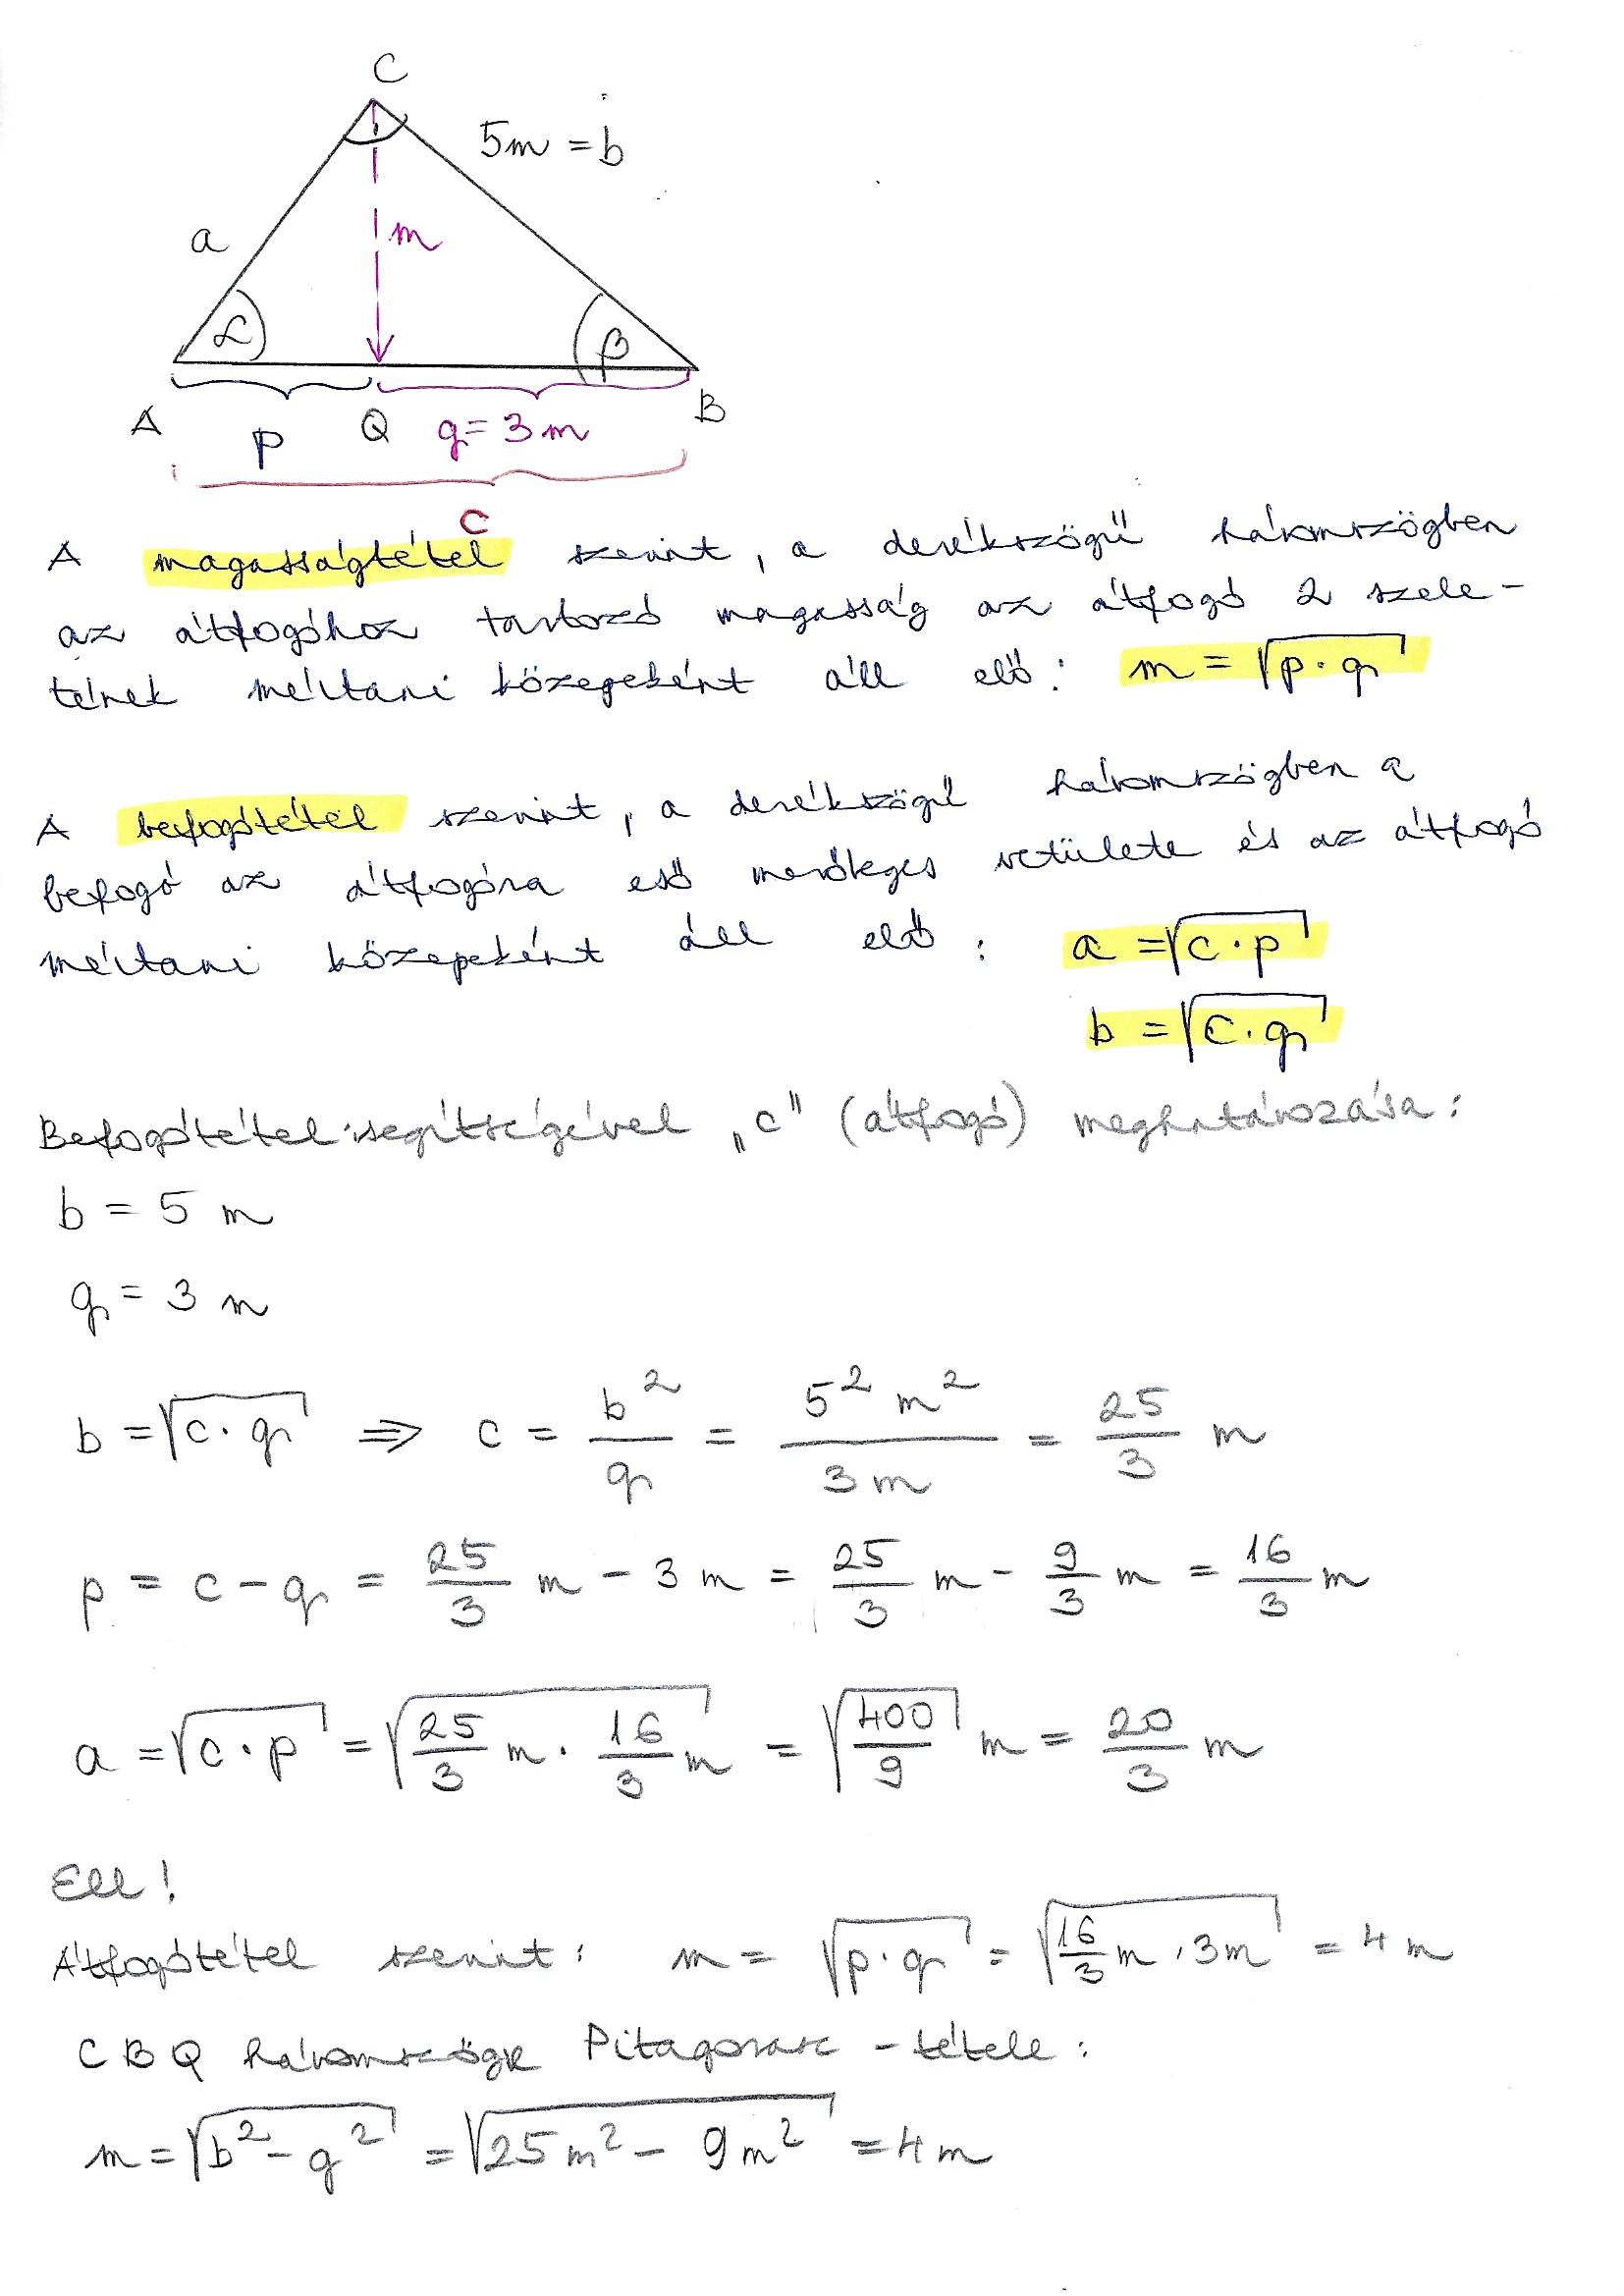 C
5m = b
a
m
α
β
A
p
Q
q = 3 m
B
c
A magasságtétel szerint, a derékszögű háromszögben
az átfogóhoz tartozó magasság az átfogó 2 szele-
tének mértani közepeként áll elő: m = √(p · q)
A befogótétel szerint, a derékszögű háromszögben a
befogó az átfogóra eső merőleges vetülete és az átfogó
mértani közepeként áll elő: a = √(c · p)
b = √(c · q)
Befogótétel segítségével „c" (átfogó) meghatározása:
b = 5 m
q = 3 m
b = √(c · q) ⇒ c = b²/q = 5² m²/3 m = 25/3 m
p = c - q = 25/3 m - 3 m = 25/3 m - 9/3 m = 16/3 m
a = √(c · p) = √(25/3 m · 16/3 m) = √(400/9) m = 20/3 m
Ell!
Átfogótétel szerint: m = √(p · q) = √(16/3 m · 3m) = 4 m
CBQ háromszögre Pitagorasz - tétele:
m = √(b² - q²) = √(25 m² - 9 m²) = 4 m